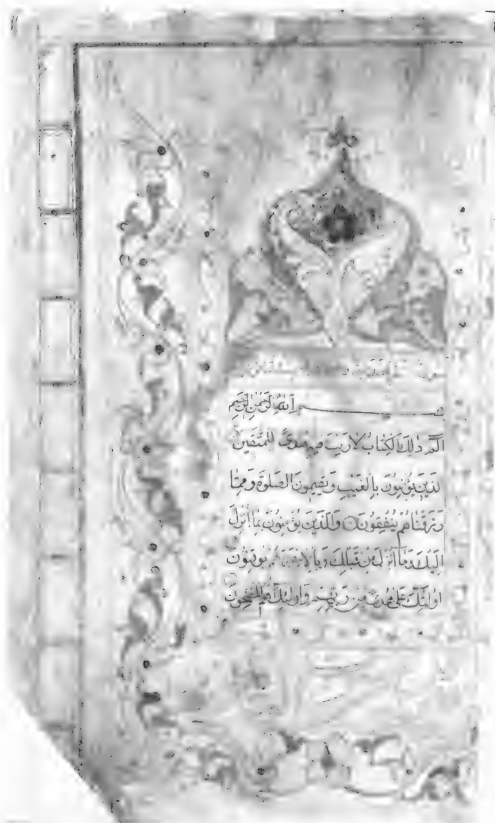 بسم الله الرحمن الرحيم
الم ذلك الكتاب لا ريب فيه هدى للمتقين
الذين يؤمنون بالغيب ويقيمون الصلوة ومما
رزقناهم ينفقون والذين يؤمنون بما أنزل
اليك وما أنزل من قبلك وبالاخرة هم يوقنون
اولئك على هدى من ربهم واولئك هم المفلحون